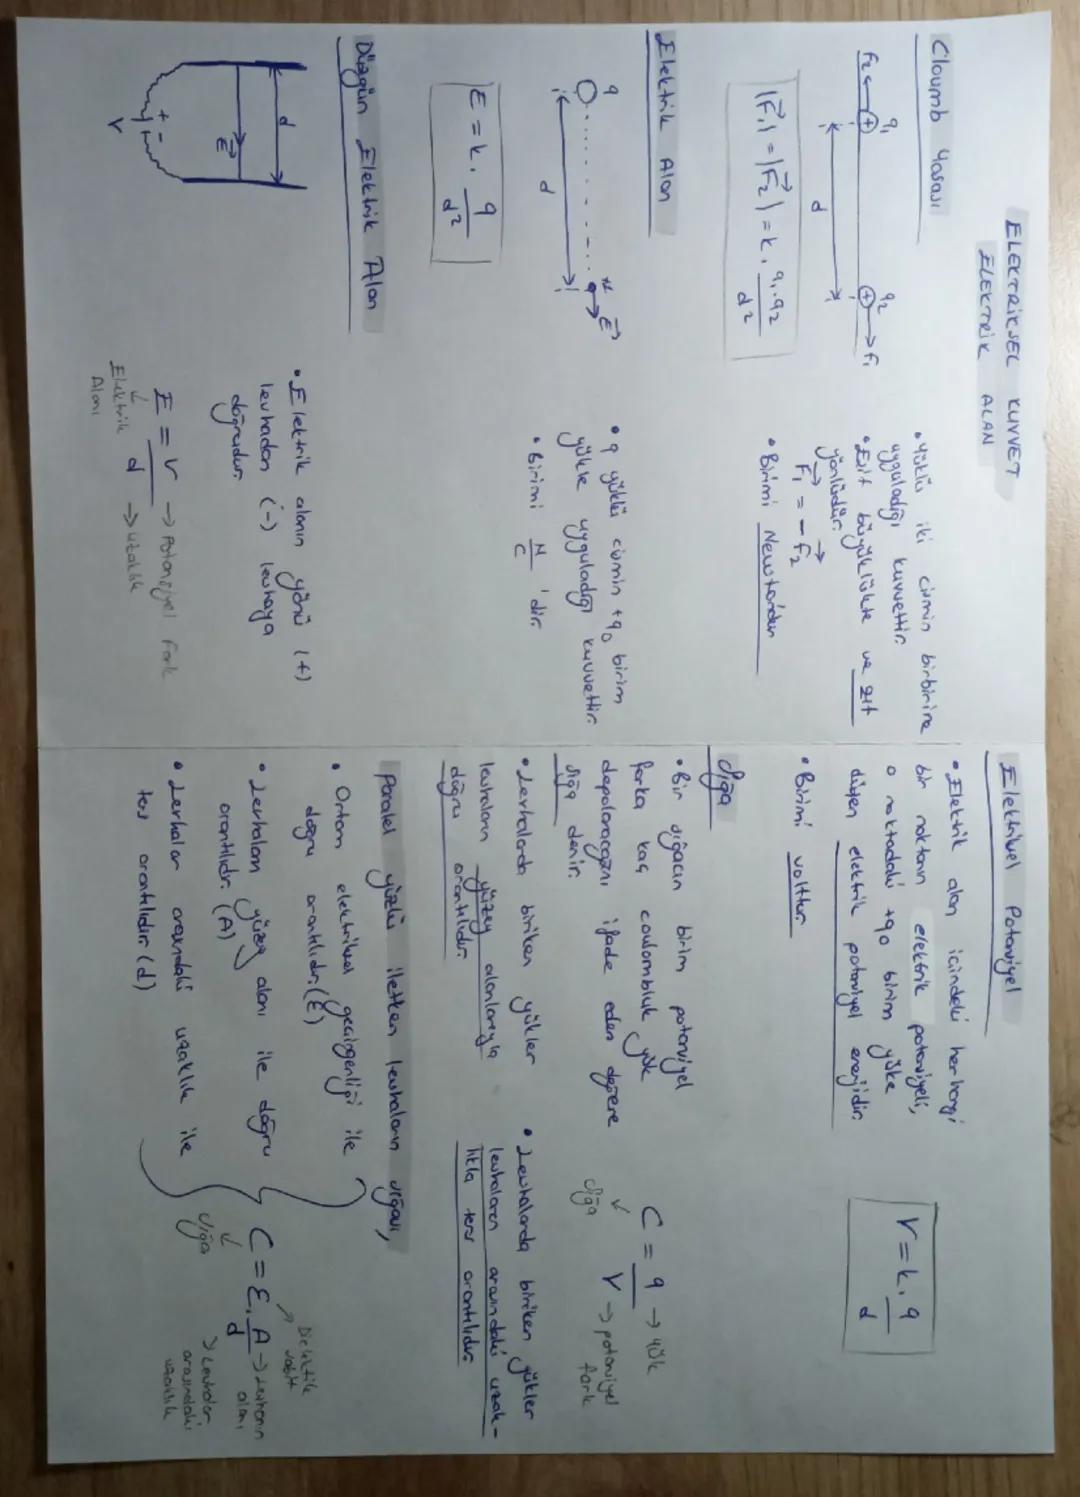 ELEKTRİKSEL KUVVET
ELEKTRİK ALAN
Cloumb Yasası
q₁ q₂
F₂ + + F₁
d
|F₁| = |F₂| = k . q₁.q₂ / d²
• Yüklü iki cismin birbirine
uyguladığı kuvvettir.
• Eşit büyüklükte ve zıt
yönlüdür.
F₁ = - F₂
• Birimi Newton'dır
Elektrik Alan
q
E
d
E = k . q / d²
• q yüklü cismin +q₀ birim
yükle uyguladığı kuvvettir.
• Birimi N/C 'dir.
Düzgün Elektrik Alan
d
E
+ -
V
• Elektrik alanın yönü (+)
levhadan (-) levhaya
doğrudur.
E = V → Potansiyel Fark
d → uzaklık
Elektrik
Alanı
Elektriksel Potansiyel
• Elektrik alan içindeki herhangi
bir noktanın elektrik potansiyeli,
o noktadaki +q₀ birim yüke
düşen elektrik potansiyel enerjidir.
• Birimi volttur.
V = k . q / d
Sığa
• Bir sığacın birim potansiyel
farka kaç coulombluk yük
depolanacağını ifade eden değere
sığa denir.
C = q → yük
V → potansiyel
fark
sığa
• Levhalarda biriken yükler
levhaların yüzey alanlarıyla
doğru orantılıdır.
• Levhalarda biriken yükler
levhaların arasındaki uzak-
lıkla ters orantılıdır.
Paralel yüzlü iletken levhaların sığası,
• Ortam elektriksel geçirgenliği ile
doğru orantılıdır. (ε)
• Levhaların yüzey alanı ile doğru
orantılıdır. (A)
• Levhalar arasındaki uzaklık ile
ters orantılıdır. (d)
Dielektik
sabit
C = ε . A → Levhanın
alanı
d
sığa
→ Levhalar
arasındaki
uzaklık